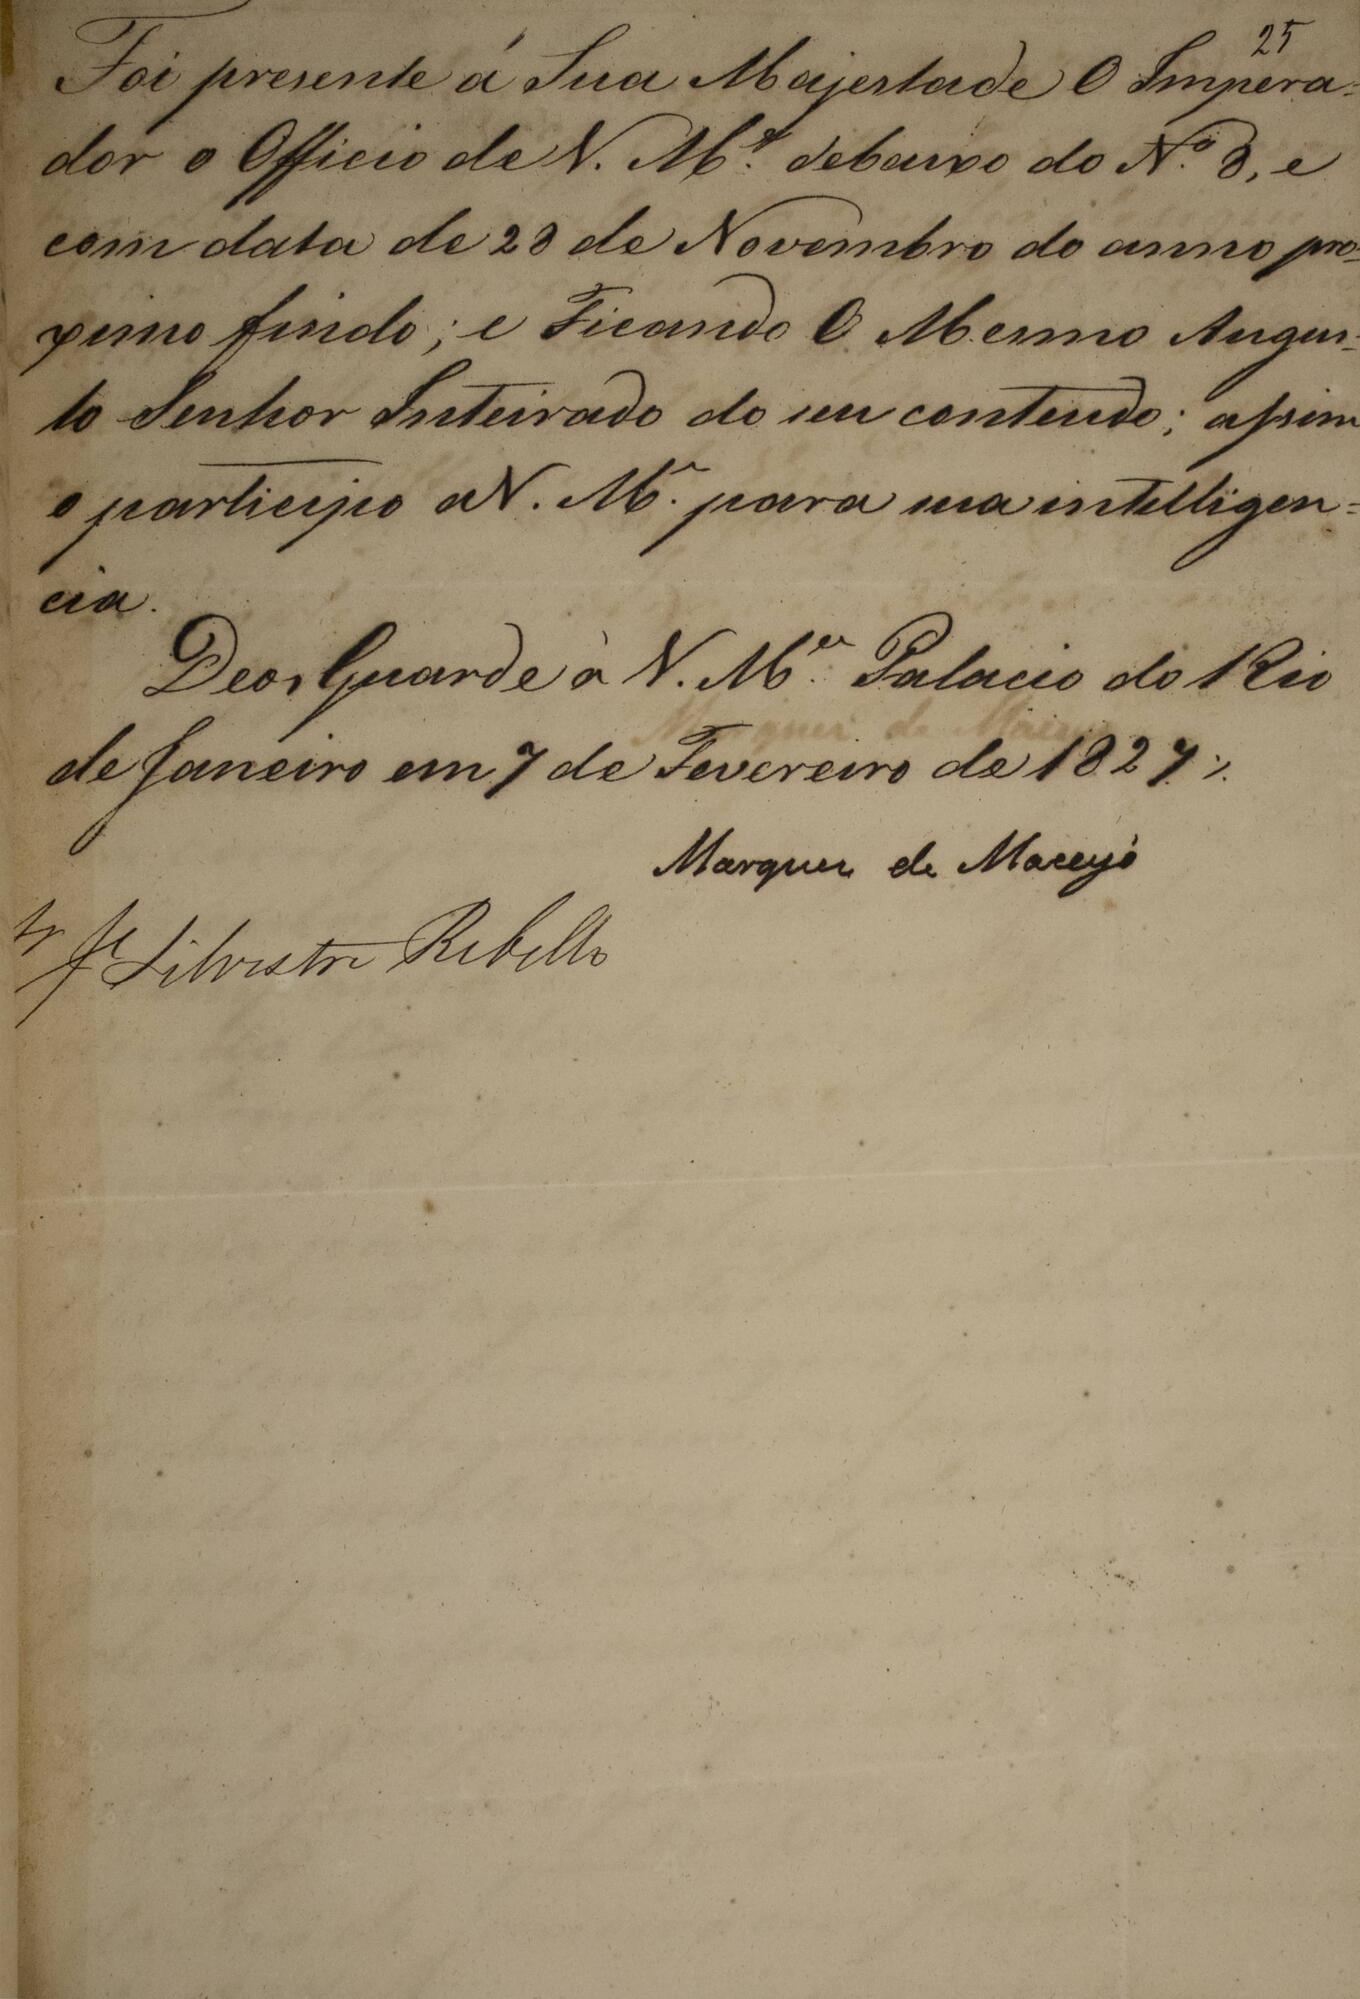 25
Foi presente á Sua Majestade O Impera-
dor o Officio de V. M.ce debaixo do N.º 8, e
com data de 28 de Novembro do anno pro-
ximo findo; e Ficando O Mesmo Augus-
to Senhor Inteirado do seu conteudo; assim
o participo a V. M.ce para sua intelligen=
cia.
Deos Guarde á V. M.ce Palacio do Rio
de Janeiro em 7 de Fevereiro de 1827 ./.
Marquez de Maceyó
Sr Je Silvestre Rebello